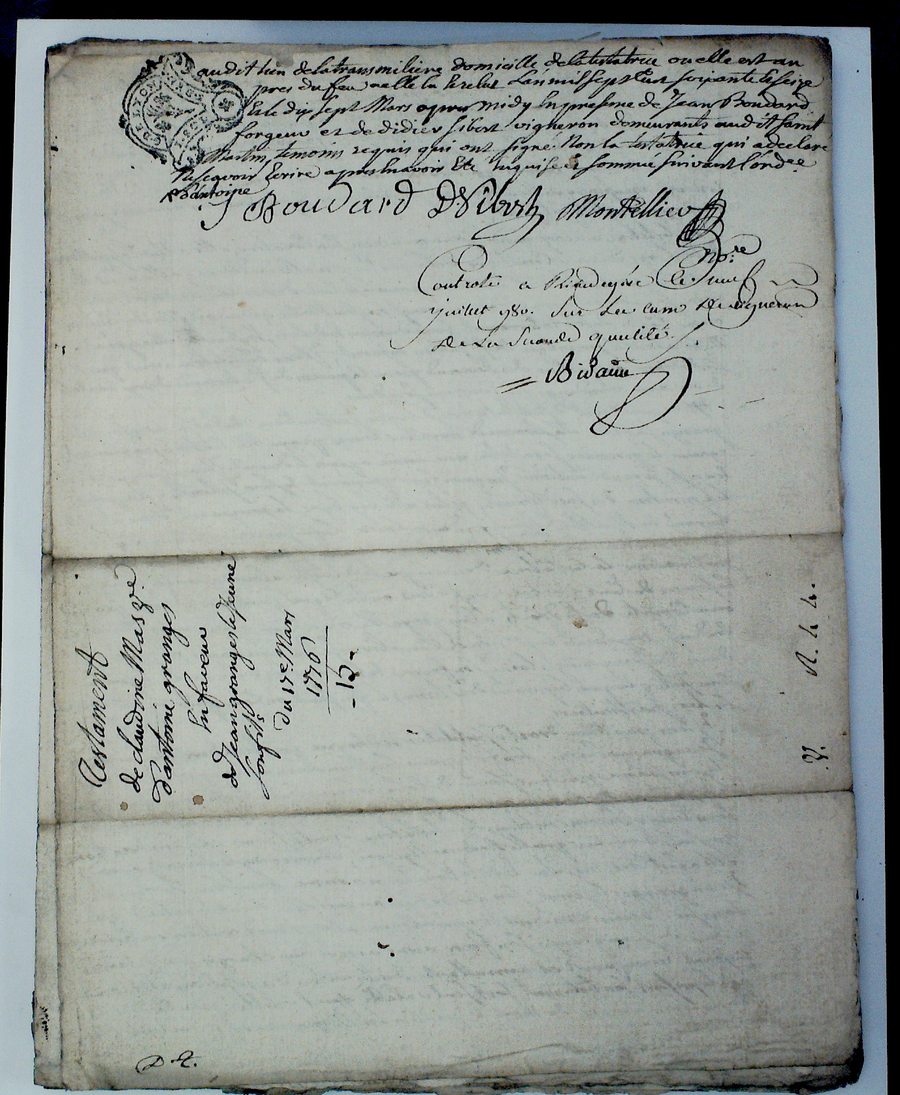 audit lieu de latransmiliere domicille de latestatrice ou elle est au
pres du feu malle in lrelut Lan mil sept Cent soixante et seize
Et le dix sept Mars apres midy En presence de Jean Boudard
forgeur et de didier sibert vigneron demeurants audit saint
Martin, temoins requis qui ont signé Non la testatrice qui a declaré
Ne scavoir Ecrire apres lavoir Eté requise et sommé suivant L'ord.ce
J Boudard D Sibert Montellier
No.re
Controlé a Rivedegier Le neuf
juillet 980. Sur Le cum de vigneron
de La Seconde qualité
Bidaun
Testament
de claudine Mas v.e
d'antoine granges
En faveur
de Jean granges le Jeune
son fils
du 17e Mars
1776
D